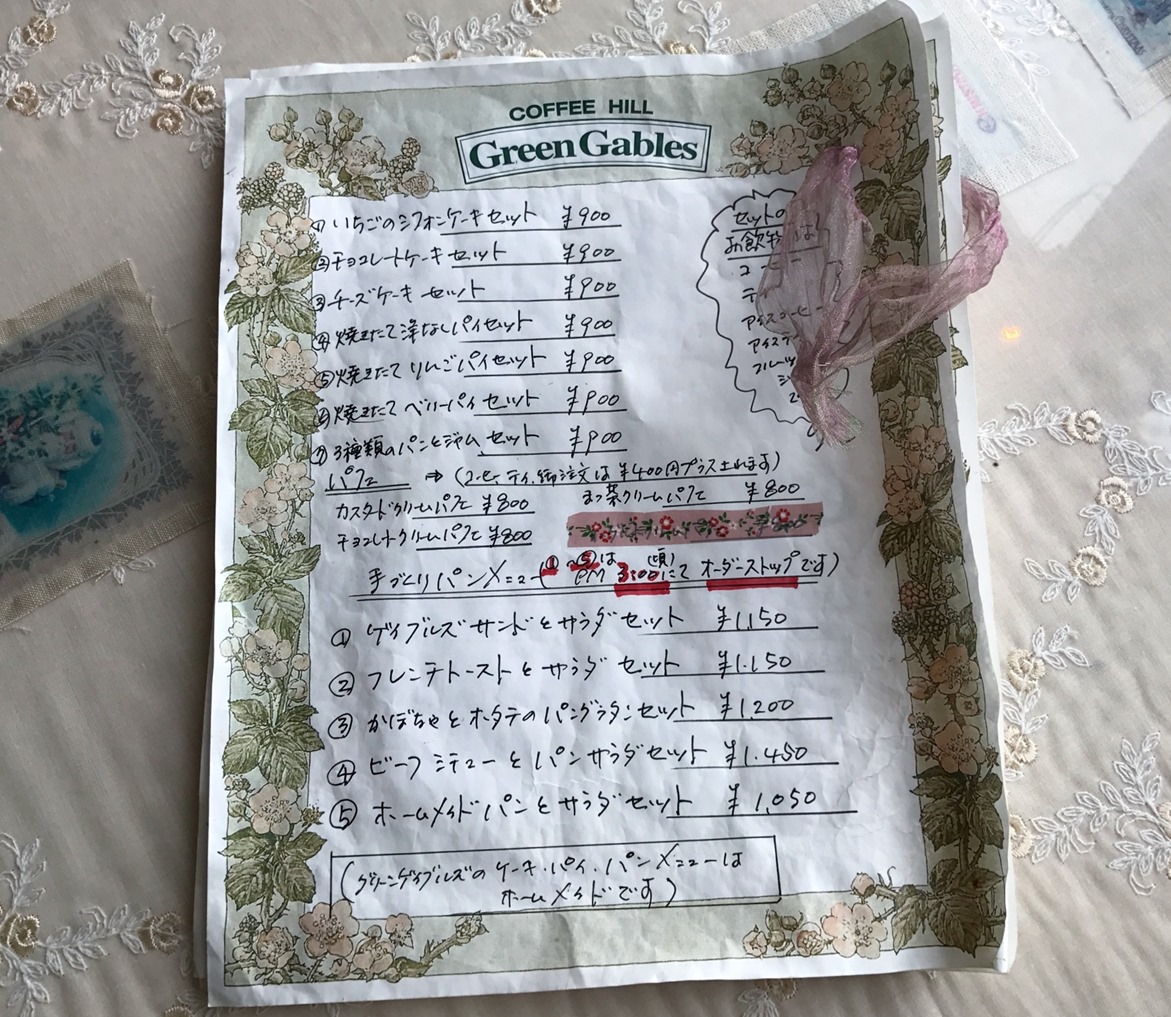 COFFEE HILL
Green Gables
① いちごのシフォンケーキセット ¥900
② チョコレートケーキセット ¥900
③ チーズケーキセット ¥900
④ 焼きたて洋なしパイセット ¥900
⑤ 焼きたてりんごパイセット ¥900
⑥ 焼きたてベリーパイセット ¥900
⑦ 3種類のパンとジャムセット ¥900
セットの
お飲物は
アイスコーヒー
アイステ
フルーツ
ジ
パフェ ⇒ (コーヒーティ御注文は¥400円プラスされます)
カスタドクリームパフェ ¥800 まっ茶クリームパフェ ¥800
チョコレートクリームパフェ ¥800
手づくりパンメニュー (①~⑤は PM 3:00頃にて オーダーストップです)
① ゲイブルズサンドとサラダセット ¥1,150
② フレンチトーストとサラダセット ¥1.150
③ かぼちゃとホタテのパングラタンセット ¥1,200
④ ビーフシチューとパンサラダセット ¥1.450
⑤ ホームメイドパンとサラダセット ¥1,050
(グリーンゲイブルズのケーキ・パイ・パンメニューは
ホームメイドです)